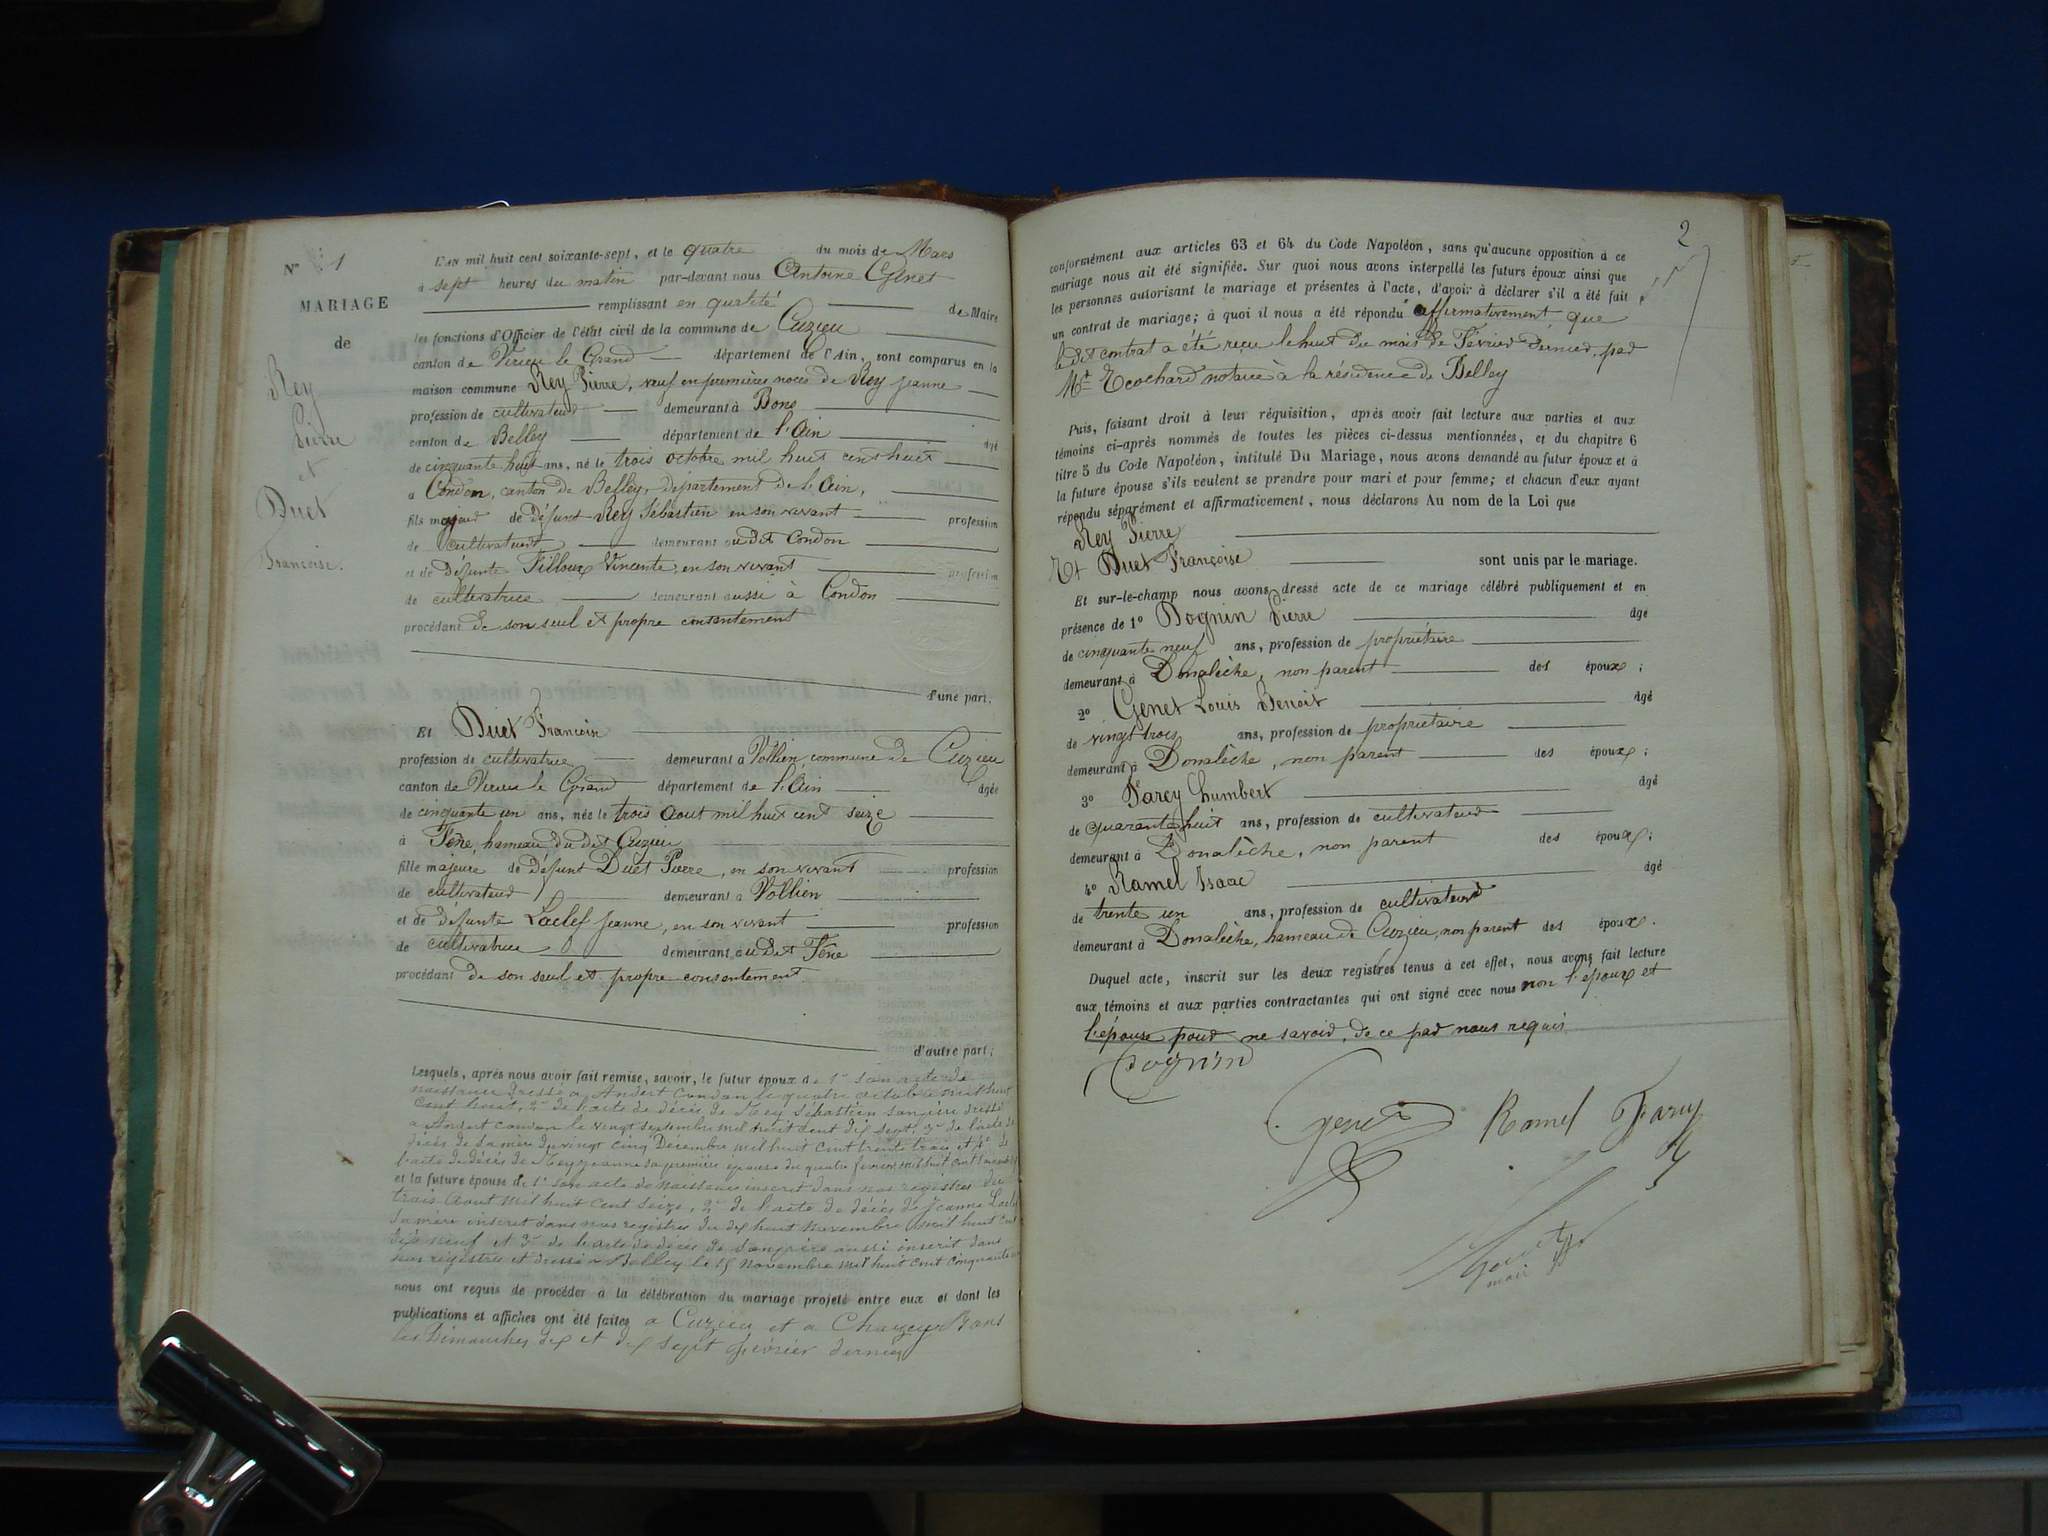 N° 1
MARIAGE
de
Rey
Pierre
et
Duet
Françoise.
L'AN mil huit cent soixante-sept, et le quatre du mois de Mars
à sept heures du matin par-devant nous Antoine Genet
remplissant en qualité de Maire
les fonctions d'Officier de l'état civil de la commune de Cuzieu
canton de Virieu le Grand département de l'Ain, sont comparus en la
maison commune Rey Pierre, veuf en premières noces de Rey Jeanne
profession de cultivateur demeurant à Bons
canton de Belley département de l'Ain âgé
de cinquante huit ans, né le trois octobre mil huit cent huit
à Condon, canton de Belley, département de l'Ain,
fils majeur de défunt Rey Sébastien en son vivant profession
de cultivateur demeurant au dit Condon
et de défunte Tilloux Vincente, en son vivant profession
de cultivatrice demeurant aussi à Condon
procédant de son seul et propre consentement
d'une part;
Et Duet Françoise
profession de cultivatrice demeurant à Vollien, commune de Cuzieu
canton de Virieu le Grand département de l'Ain âgée
de cinquante un ans, née le trois aout mil huit cent seize
à Fène, hameau du dit Cuzieu
fille majeure de défunt Duet Pierre, en son vivant profession
de cultivateur demeurant à Vollien
et de défunte Laclef Jeanne, en son vivant profession
de cultivatrice demeurant au dit Fène
procédant de son seul et propre consentement
d'autre part;
Lesquels, après nous avoir fait remise, savoir, le futur époux de 1° son acte de
naissance dressé à Andert Condon le quatre octobre mil huit
cent huit, 2° de l'acte de décès de Rey Sébastien son père dressé
a Andert Condon le vingt septembre mil huit cent dix sept, 3° de l'acte de
décès de sa mère du vingt cinq Décembre mil huit cent trente trois et 4° de
l'acte de décès de Rey Jeanne sa première épouse du quatre février mil huit cent
et la future épouse de 1° son acte de naissance inscrit dans nos registres du
trois aout mil huit cent seize, 2° de l'acte de décès de Jeanne Laclef
sa mère inscrit dans nos registres du dix huit novembre mil huit cent
dix neuf et 3° de l'acte de décès de son père aussi inscrit dans
nos registres et dressé a Belley le 15 novembre mil huit cent cinquante
nous ont requis de procéder à la célébration du mariage projeté entre eux et dont les
publications et affiches ont été faites a Cuzieu et a Chazey Bons
les Dimanches dix et dix sept février dernier
2
conformément aux articles 63 et 64 du Code Napoléon, sans qu'aucune opposition à ce
mariage nous ait été signifiée. Sur quoi nous avons interpellé les futurs époux ainsi que
les personnes autorisant le mariage et présentes à l'acte, d'avoir à déclarer s'il a été fait
un contrat de mariage; à quoi il nous a été répondu affirmativement que
le dit contrat a été reçu le huit du mois de Février dernier, par
Mt Ecochard notaire à la résidence de Belley
Puis, faisant droit à leur réquisition, après avoir fait lecture aux parties et aux
témoins ci-après nommés de toutes les pièces ci-dessus mentionnées, et du chapitre 6
titre 5 du Code Napoléon, intitulé Du Mariage, nous avons demandé au futur époux et à
la future épouse s'ils veulent se prendre pour mari et pour femme; et chacun d'eux ayant
répondu séparément et affirmativement, nous déclarons Au nom de la Loi que
Rey Pierre
Et Duet Françoise sont unis par le mariage.
Et sur-le-champ nous avons dressé acte de ce mariage célébré publiquement et en
présence de 1° Dognin Pierre âgé
de cinquante neuf ans, profession de propriétaire
demeurant à Donalèche, non parent des époux;
2° Genet Louis Benoit âgé
de vingt trois ans, profession de propriétaire
demeurant à Donalèche, non parent des époux;
3° Farcy humbert âgé
de quarante huit ans, profession de cultivateur
demeurant à Donalèche, non parent des époux;
4° Ramel Isaac âgé
de trente un ans, profession de cultivateur
demeurant à Donalèche, hameau de Cuzieu, non parent des époux.
Duquel acte, inscrit sur les deux registres tenus à cet effet, nous avons fait lecture
aux témoins et aux parties contractantes qui ont signé avec nous non l'époux et
l'épouse pour ne savoir, de ce par nous requis
Dognin
Genet Ramel Farcy
Genet
maire